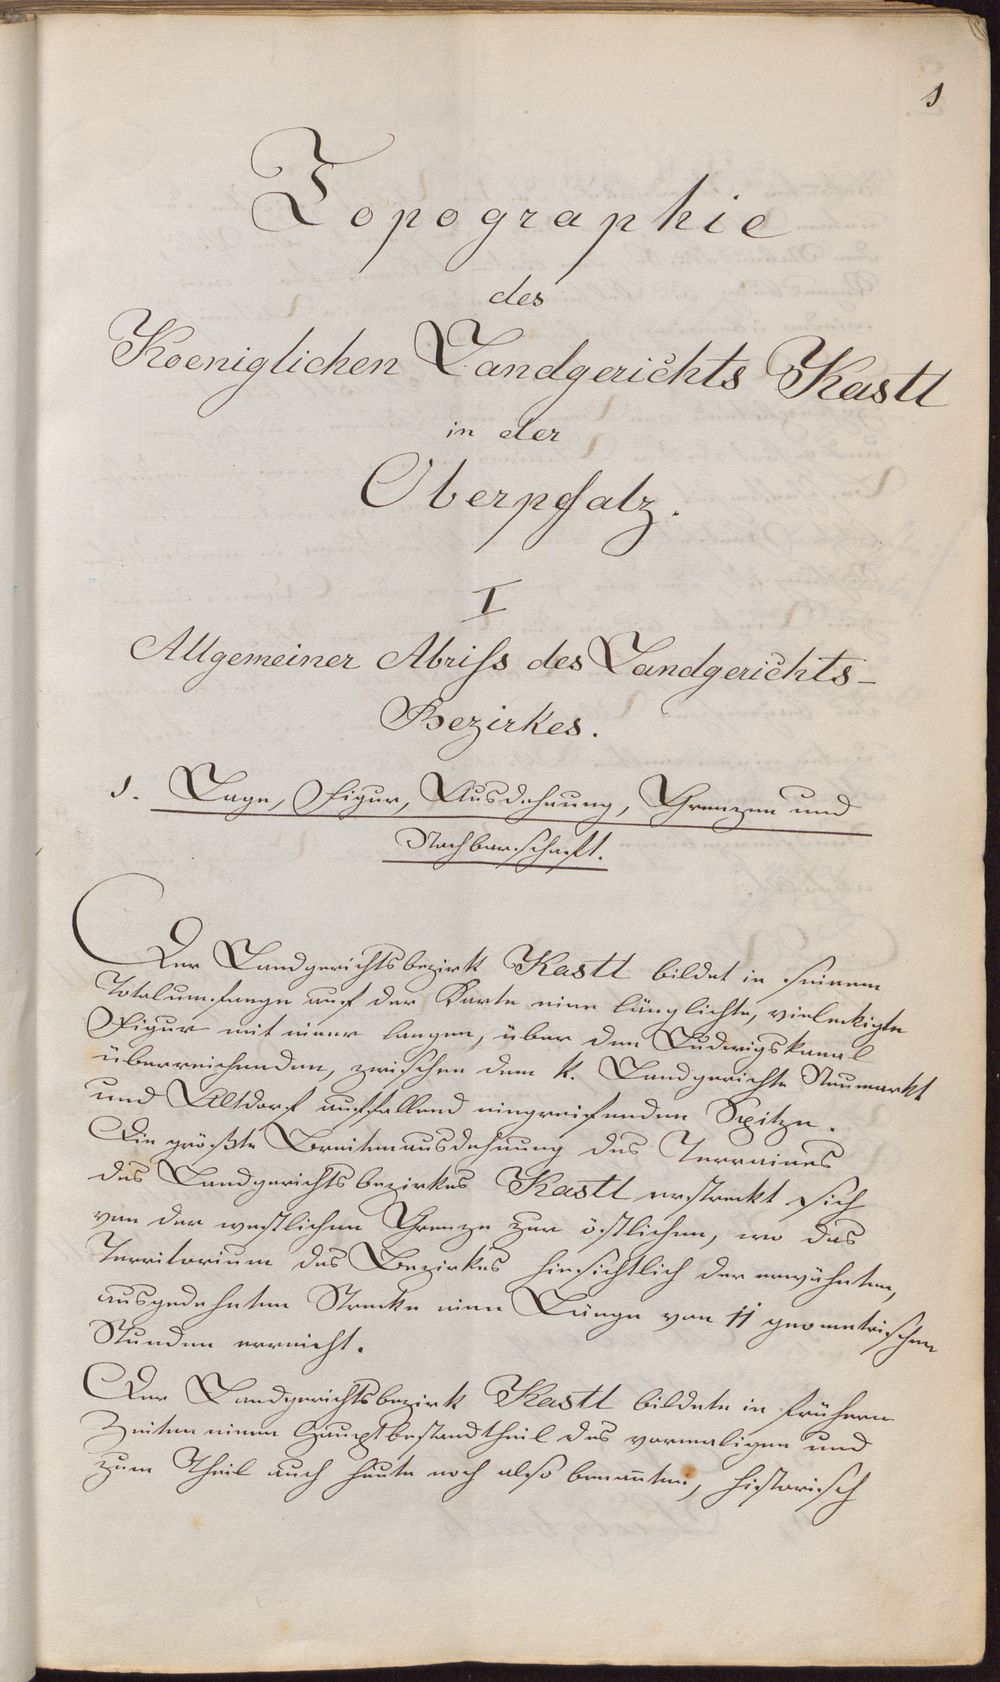 1
Topographie
des
Koeniglichen Landgerichts Kastl
in der
Oberpfalz.
I
Allgemeiner Abriss des Landgerichts-
Bezirkes.
1. Lage, Figur, Ausdehnung, Grenzen und
Nachbarschaft.
Der Landgerichtsbezirk Kastl bildet in seinem
Totalumfange auf der Karte eine länglichte, vieleckigte
Figur mit einer langen, über den Ludwigskanal
überreichenden, zwischen dem k. Landgerichte Neumarkt
und Altdorf auffallend eingreifenden Spitze.
Die größte Breitenausdehnung des Terraines
des Landgerichtsbezirkes Kastl erstreckt sich
von der westlichen Grenze zur östlichen, wo das
Territorium des Bezirkes hinsichtlich der erwähnten,
ausgedehnten Strecke eine Länge von 11 geometrischen
Stunden erreicht.
Der Landgerichtsbezirk Kastl bildete in frühern
Zeiten einen Hauptbestandtheil des vormaligen und
zum Theil auch heute noch also benannten, historisch